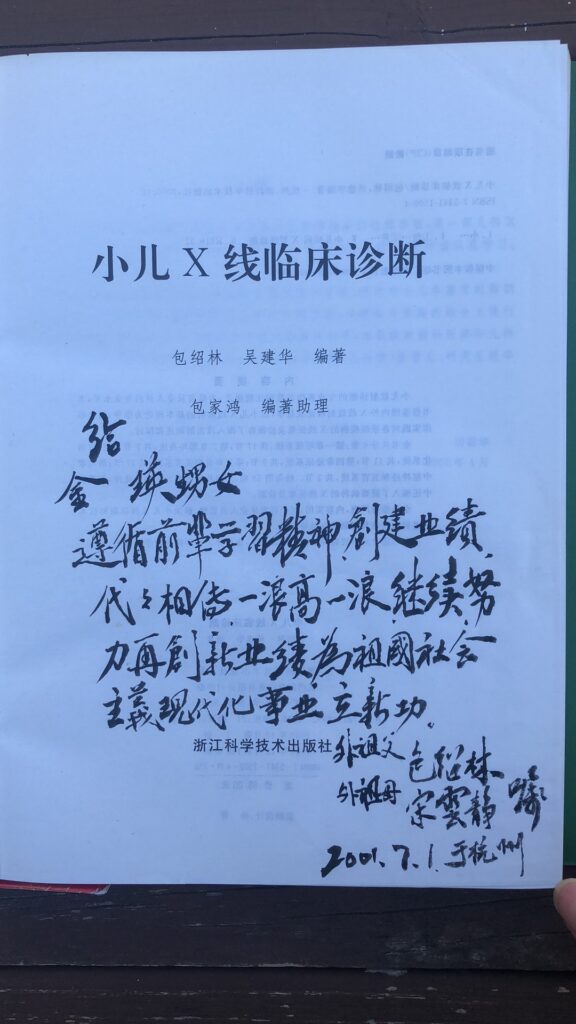 小儿X线临床诊断
包绍林 吴建华 编著
包家鸿 编著助理
给
金瑛甥女
遵循前輩学習精神,創建业績,
代々相传,一浪高一浪,继续努
力再創新业绩,為祖國社会
主義現代化事业立新功。
浙江科学技术出版社
外祖父 包绍林
外祖母 宗雲静
2001.7.1.于杭州